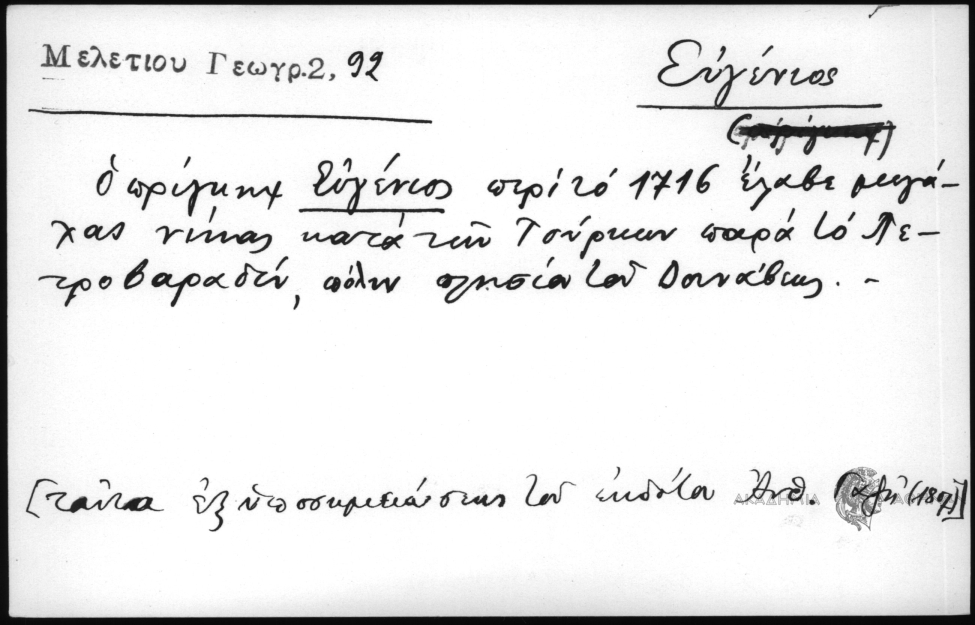 Μελετίου Γεωγρ.2, 92
Εὐγένιος
ὁ πρίγκηψ Εὐγένιος περί τό 1716 ἔλαβε μεγά-
λας νίκας κατά τῶν Τούρκων παρά τό Πε-
τροβαραδίν, πόλιν πλησίον τοῦ Δουνάβεως. -
[ταῦτα ἐξ ὑποσημειώσεως τοῦ ἐκδότου Ἀνθ. Γαζῆ (1807)]
ΑΚΑΔΗΜΙΑ